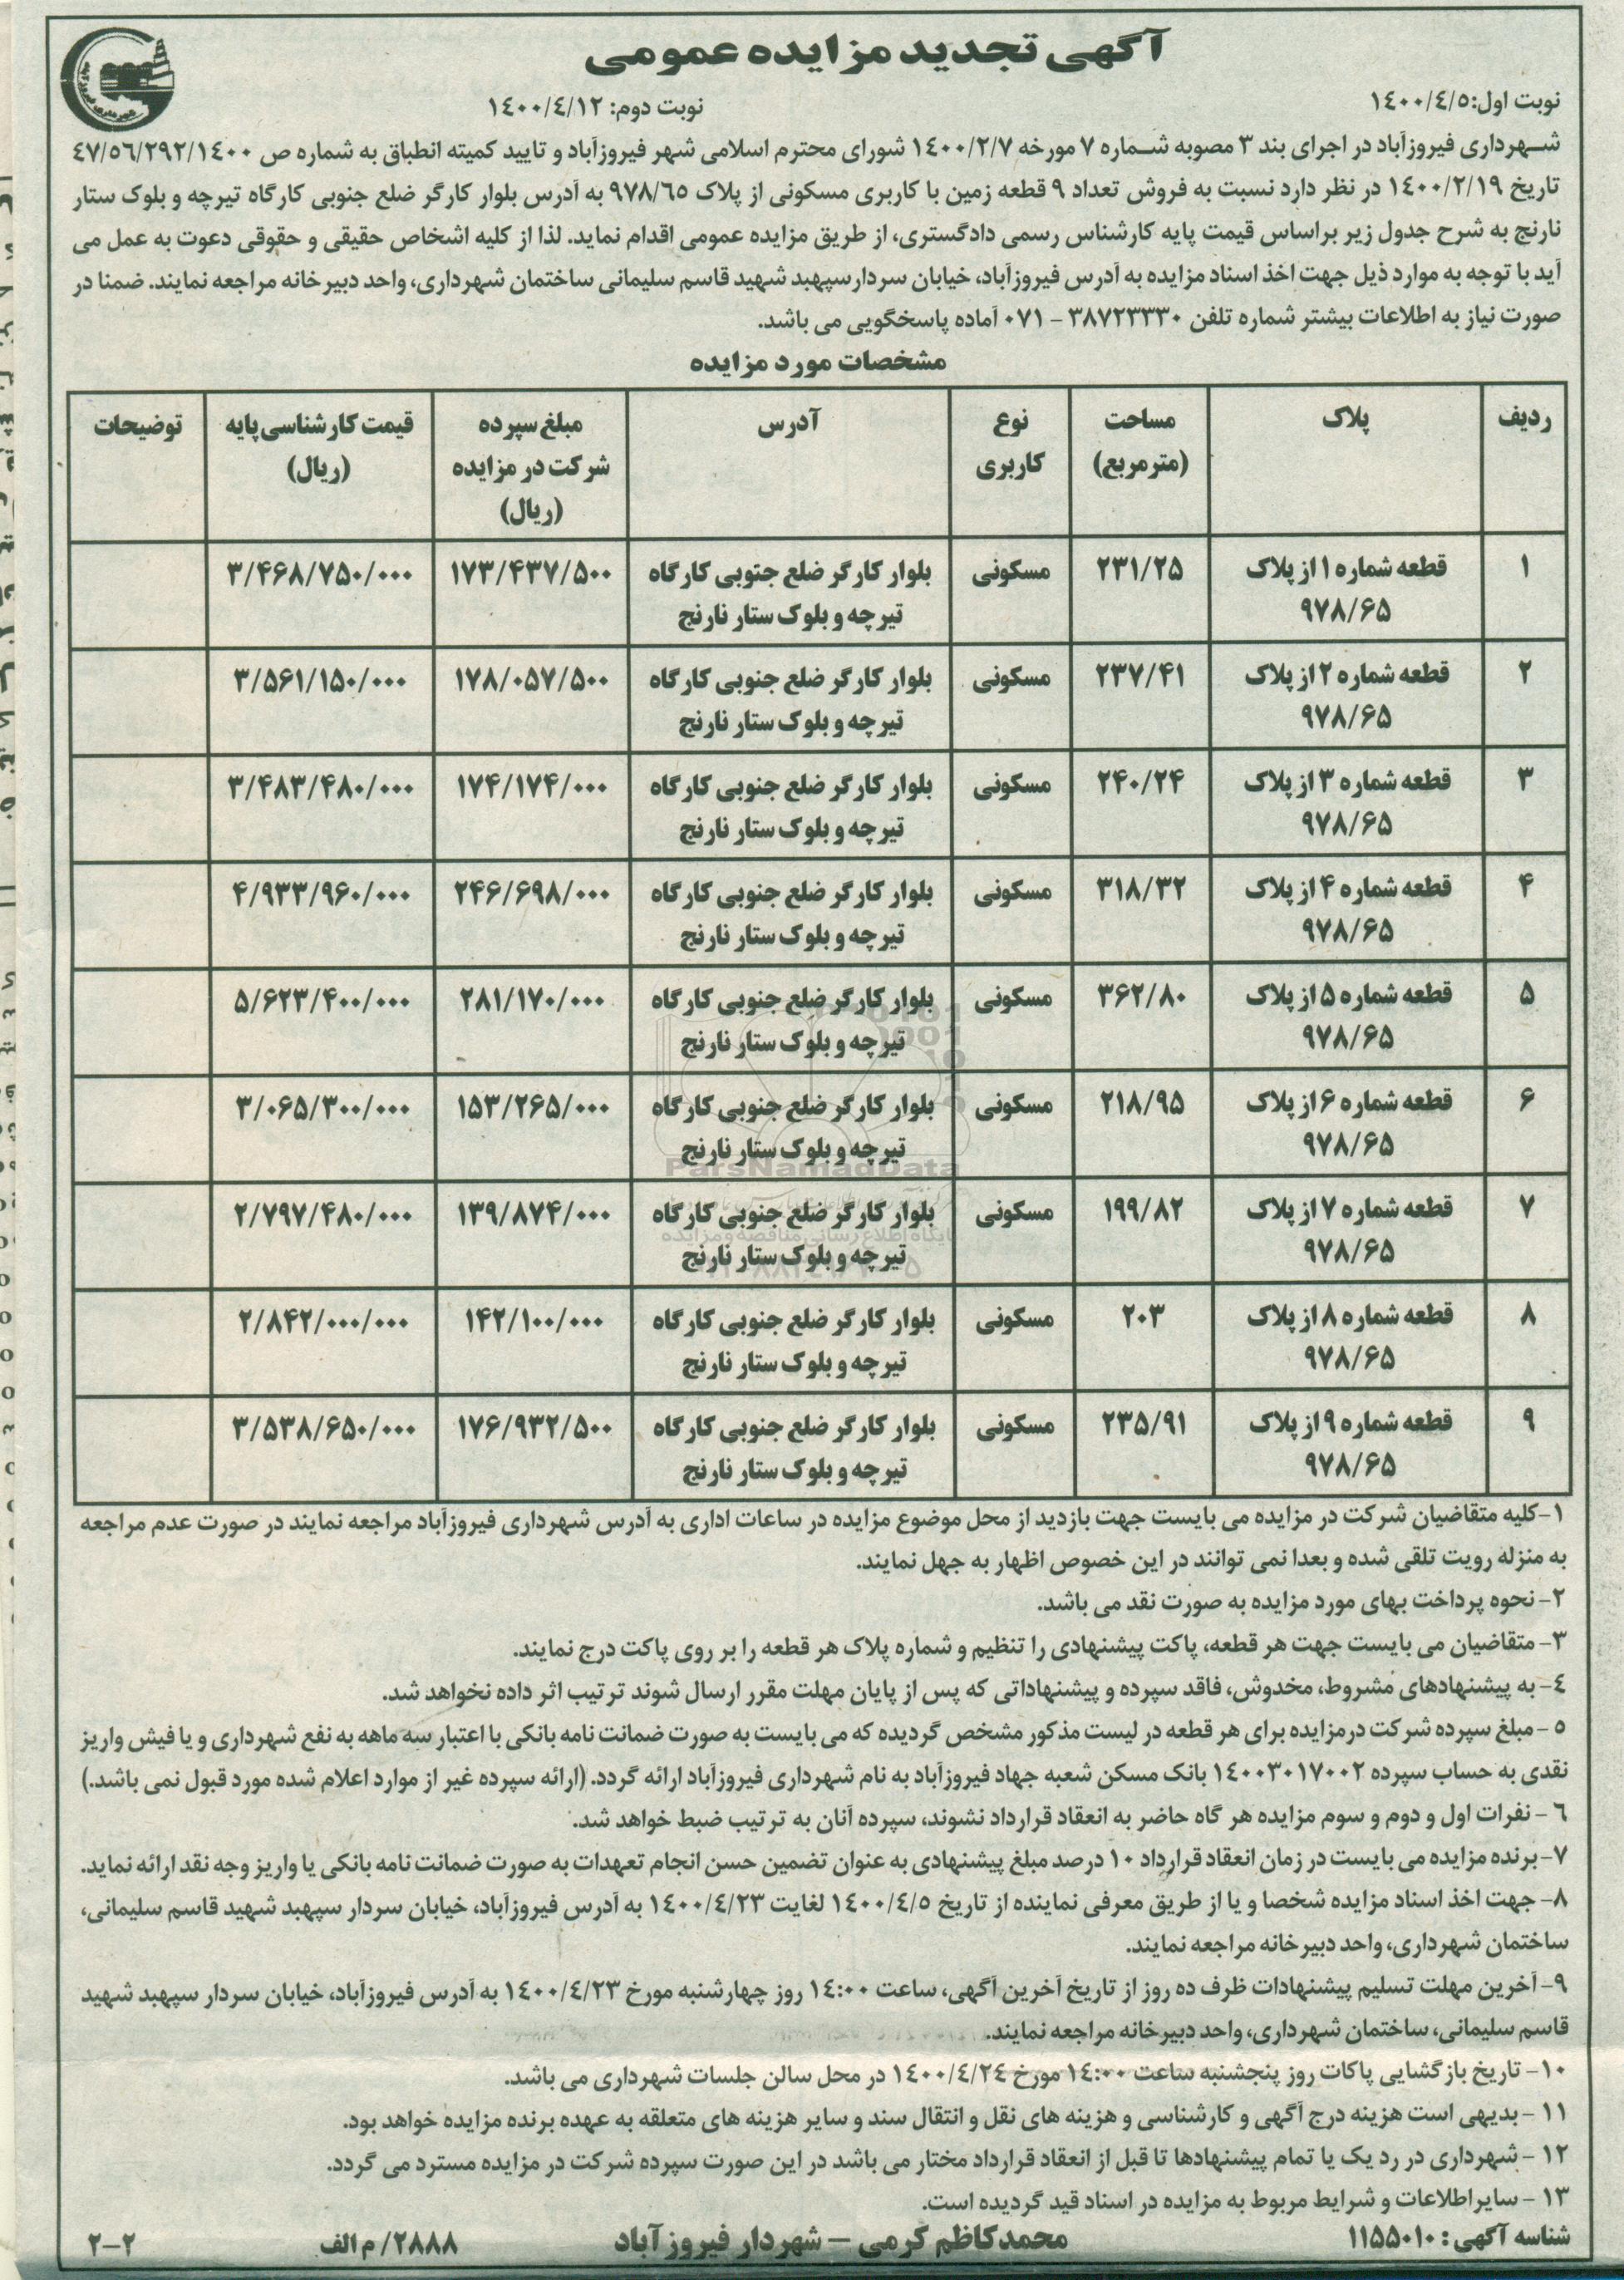 آگهی تجدید مزایده عمومی
نوبت اول:۱۴۰۰/۴/۵
نوبت دوم: ۱۴۰۰/۴/۱۲
شهرداری فیروزآباد در اجرای بند ۳ مصوبه شماره ۷ مورخه ۱۴۰۰/۲/۷ شورای محترم اسلامی شهر فیروزآباد و تایید کمیته انطباق به شماره ص ۴۷/۵۶/۲۹۲/۱۴۰۰
تاریخ ۱۴۰۰/۲/۱۹ در نظر دارد نسبت به فروش تعداد ۹ قطعه زمین با کاربری مسکونی از پلاک ۹۷۸/۶۵ به آدرس بلوار کارگر ضلع جنوبی کارگاه تیرچه و بلوک ستار
نارنج به شرح جدول زیر براساس قیمت پایه کارشناس رسمی دادگستری، از طریق مزایده عمومی اقدام نماید. لذا از کلیه اشخاص حقیقی و حقوقی دعوت به عمل می
آید با توجه به موارد ذیل جهت اخذ اسناد مزایده به آدرس فیروزآباد، خیابان سردارسپهبد شهید قاسم سلیمانی ساختمان شهرداری، واحد دبیرخانه مراجعه نمایند. ضمنا در
صورت نیاز به اطلاعات بیشتر شماره تلفن ۳۸۷۲۳۳۳۰ – ۰۷۱ آماده پاسخگویی می باشد.
مشخصات مورد مزایده
ردیف پلاک مساحت نوع آدرس مبلغ سپرده قیمت کارشناسی پایه توضیحات
(مترمربع) کاربری شرکت در مزایده (ریال)
(ریال)
۱ قطعه شماره ۱ از پلاک ۲۳۱/۲۵ مسکونی بلوار کارگر ضلع جتوبی کارگاه ۱۷۳/۴۳۷/۵۰۰ ۳/۴۶۸/۷۵۰/۰۰۰
۹۷۸/۶۵ تیرچه و بلوک ستار نارنج
۲ قطعه شماره ۲ از پلاک ۲۳۷/۴۱ مسکونی بلوار کارگر ضلع جنوبی کارگاه ۱۷۸/۰۵۷/۵۰۰ ۳/۵۶۱/۱۵۰/۰۰۰
۹۷۸/۶۵ تیرچه و بلوک ستار نارنج
۳ قطعه شماره ۳ از پلاک ۲۴۰/۲۴ مسکونی بلوار کارگر ضلع جنوبی کارگاه ۱۷۴/۱۷۴/۰۰۰ ۳/۴۸۳/۴۸۰/۰۰۰
۹۷۸/۶۵ تیرچه و بلوک ستار نارنج
۴ قطعه شماره ۴ از پلاک ۳۱۸/۳۲ مسکونی بلوار کارگر ضلع جنوبی کارگاه ۲۴۶/۶۹۸/۰۰۰ ۴/۹۳۳/۹۶۰/۰۰۰
۹۷۸/۶۵ تیرچه و بلوک ستار نارنج
۵ قطعه شماره ۵ از پلاک ۳۶۲/۸۰ مسکونی بلوار کارگر ضلع جنوبی کارگاه ۲۸۱/۱۷۰/۰۰۰ ۵/۶۲۳/۴۰۰/۰۰۰
۹۷۸/۶۵ تیرچه و بلوک ستار نارنج
۶ قطعه شماره ۶ از پلاک ۲۱۸/۹۵ مسکونی بلوار کارگر ضلع جنوبی کارگاه ۱۵۳/۲۶۵/۰۰۰ ۳/۰۶۵/۳۰۰/۰۰۰
۹۷۸/۶۵ تیرچه و بلوک ستار نارنج
ParsNamadData
۷ قطعه شماره ۷ از پلاک ۱۹۹/۸۲ مسکونی بلوار کارگر ضلع جنوبی کارگاه ۱۳۹/۸۷۴/۰۰۰ ۲/۷۹۷/۴۸۰/۰۰۰
پایگاه اطلاع رسانی مناقصه و مزایده
۹۷۸/۶۵ تیرچه و بلوک ستار نارنج
۸ قطعه شماره ۸ از پلاک ۲۰۳ مسکونی بلوار کارگر ضلع جنوبی کارگاه ۱۴۲/۱۰۰/۰۰۰ ۲/۸۴۲/۰۰۰/۰۰۰
۹۷۸/۶۵ تیرچه و بلوک ستار نارنج
۹ قطعه شماره ۹ از پلاک ۲۳۵/۹۱ مسکونی بلوار کارگر ضلع جنوبی کارگاه ۱۷۶/۹۳۲/۵۰۰ ۳/۵۳۸/۶۵۰/۰۰۰
۹۷۸/۶۵ تیرچه و بلوک ستار نارنج
۱-کلیه متقاضیان شرکت در مزایده می بایست جهت بازدید از محل موضوع مزایده در ساعات اداری به آدرس شهرداری فیروزآباد مراجعه نمایند در صورت عدم مراجعه
به منزله رویت تلقی شده و بعدا نمی توانند در این خصوص اظهار به جهل نمایند.
۲- نحوه پرداخت بهای مورد مزایده به صورت نقد می باشد.
۳- متقاضیان می بایست جهت هر قطعه، پاکت پیشنهادی را تنظیم و شماره پلاک هر قطعه را بر روی پاکت درج نمایند.
۴- به پیشنهادهای مشروط، مخدوش، فاقد سپرده و پیشنهاداتی که پس از پایان مهلت مقرر ارسال شوند ترتیب اثر داده نخواهد شد.
۵ - مبلغ سپرده شرکت درمزایده برای هر قطعه در لیست مذکور مشخص گردیده که می بایست به صورت ضمانت نامه بانکی با اعتبار سه ماهه به نفع شهرداری و یا فیش واریز
نقدی به حساب سپرده ۱۴۰۰۳۰۱۷۰۰۲ بانک مسکن شعبه جهاد فیروزآباد به نام شهرداری فیروزآباد ارائه گردد. (ارائه سپرده غیر از موارد اعلام شده مورد قبول نمی باشد.)
۶ - نفرات اول و دوم و سوم مزایده هر گاه حاضر به انعقاد قرارداد نشوند، سپرده آنان به ترتیب ضبط خواهد شد.
۷- برنده مزایده می بایست در زمان انعقاد قرارداد ۱۰ درصد مبلغ پیشنهادی به عنوان تضمین حسن انجام تعهدات به صورت ضمانت نامه بانکی یا واریز وجه نقد ارائه نماید.
۸- جهت اخذ اسناد مزایده شخصا و یا از طریق معرفی نماینده از تاریخ ۱۴۰۰/۴/۵ لغایت ۱۴۰۰/۴/۲۳ به آدرس فیروزآباد، خیابان سردار سپهبد شهید قاسم سلیمانی،
ساختمان شهرداری، واحد دبیرخانه مراجعه نمایند.
۹- آخرین مهلت تسلیم پیشنهادات ظرف ده روز از تاریخ آخرین آگهی، ساعت ۱۴:۰۰ روز چهارشنبه مورخ ۱۴۰۰/۴/۲۳ به آدرس فیروزآباد، خیابان سردار سپهبد شهید
قاسم سلیمانی، ساختمان شهرداری، واحد دبیرخانه مراجعه نمایند.
۱۰- تاریخ بازگشایی پاکات روز پنجشنبه ساعت ۱۴:۰۰ مورخ ۱۴۰۰/۴/۲۴ در محل سالن جلسات شهرداری می باشد.
۱۱ - بدیهی است هزینه درج آگهی و کارشناسی و هزینه های نقل و انتقال سند و سایر هزینه های متعلقه به عهده برنده مزایده خواهد بود.
۱۲ - شهرداری در رد یک یا تمام پیشنهادها تا قبل از انعقاد قرارداد مختار می باشد در این صورت سپرده شرکت در مزایده مسترد می گردد.
۱۳ - سایراطلاعات و شرایط مربوط به مزایده در اسناد قید گردیده است.
شناسه آگهی: ۱۱۵۵۰۱۰ محمدکاظم کرمی – شهردار فیروزآباد ۲۸۸۸/م الف ۲-۲